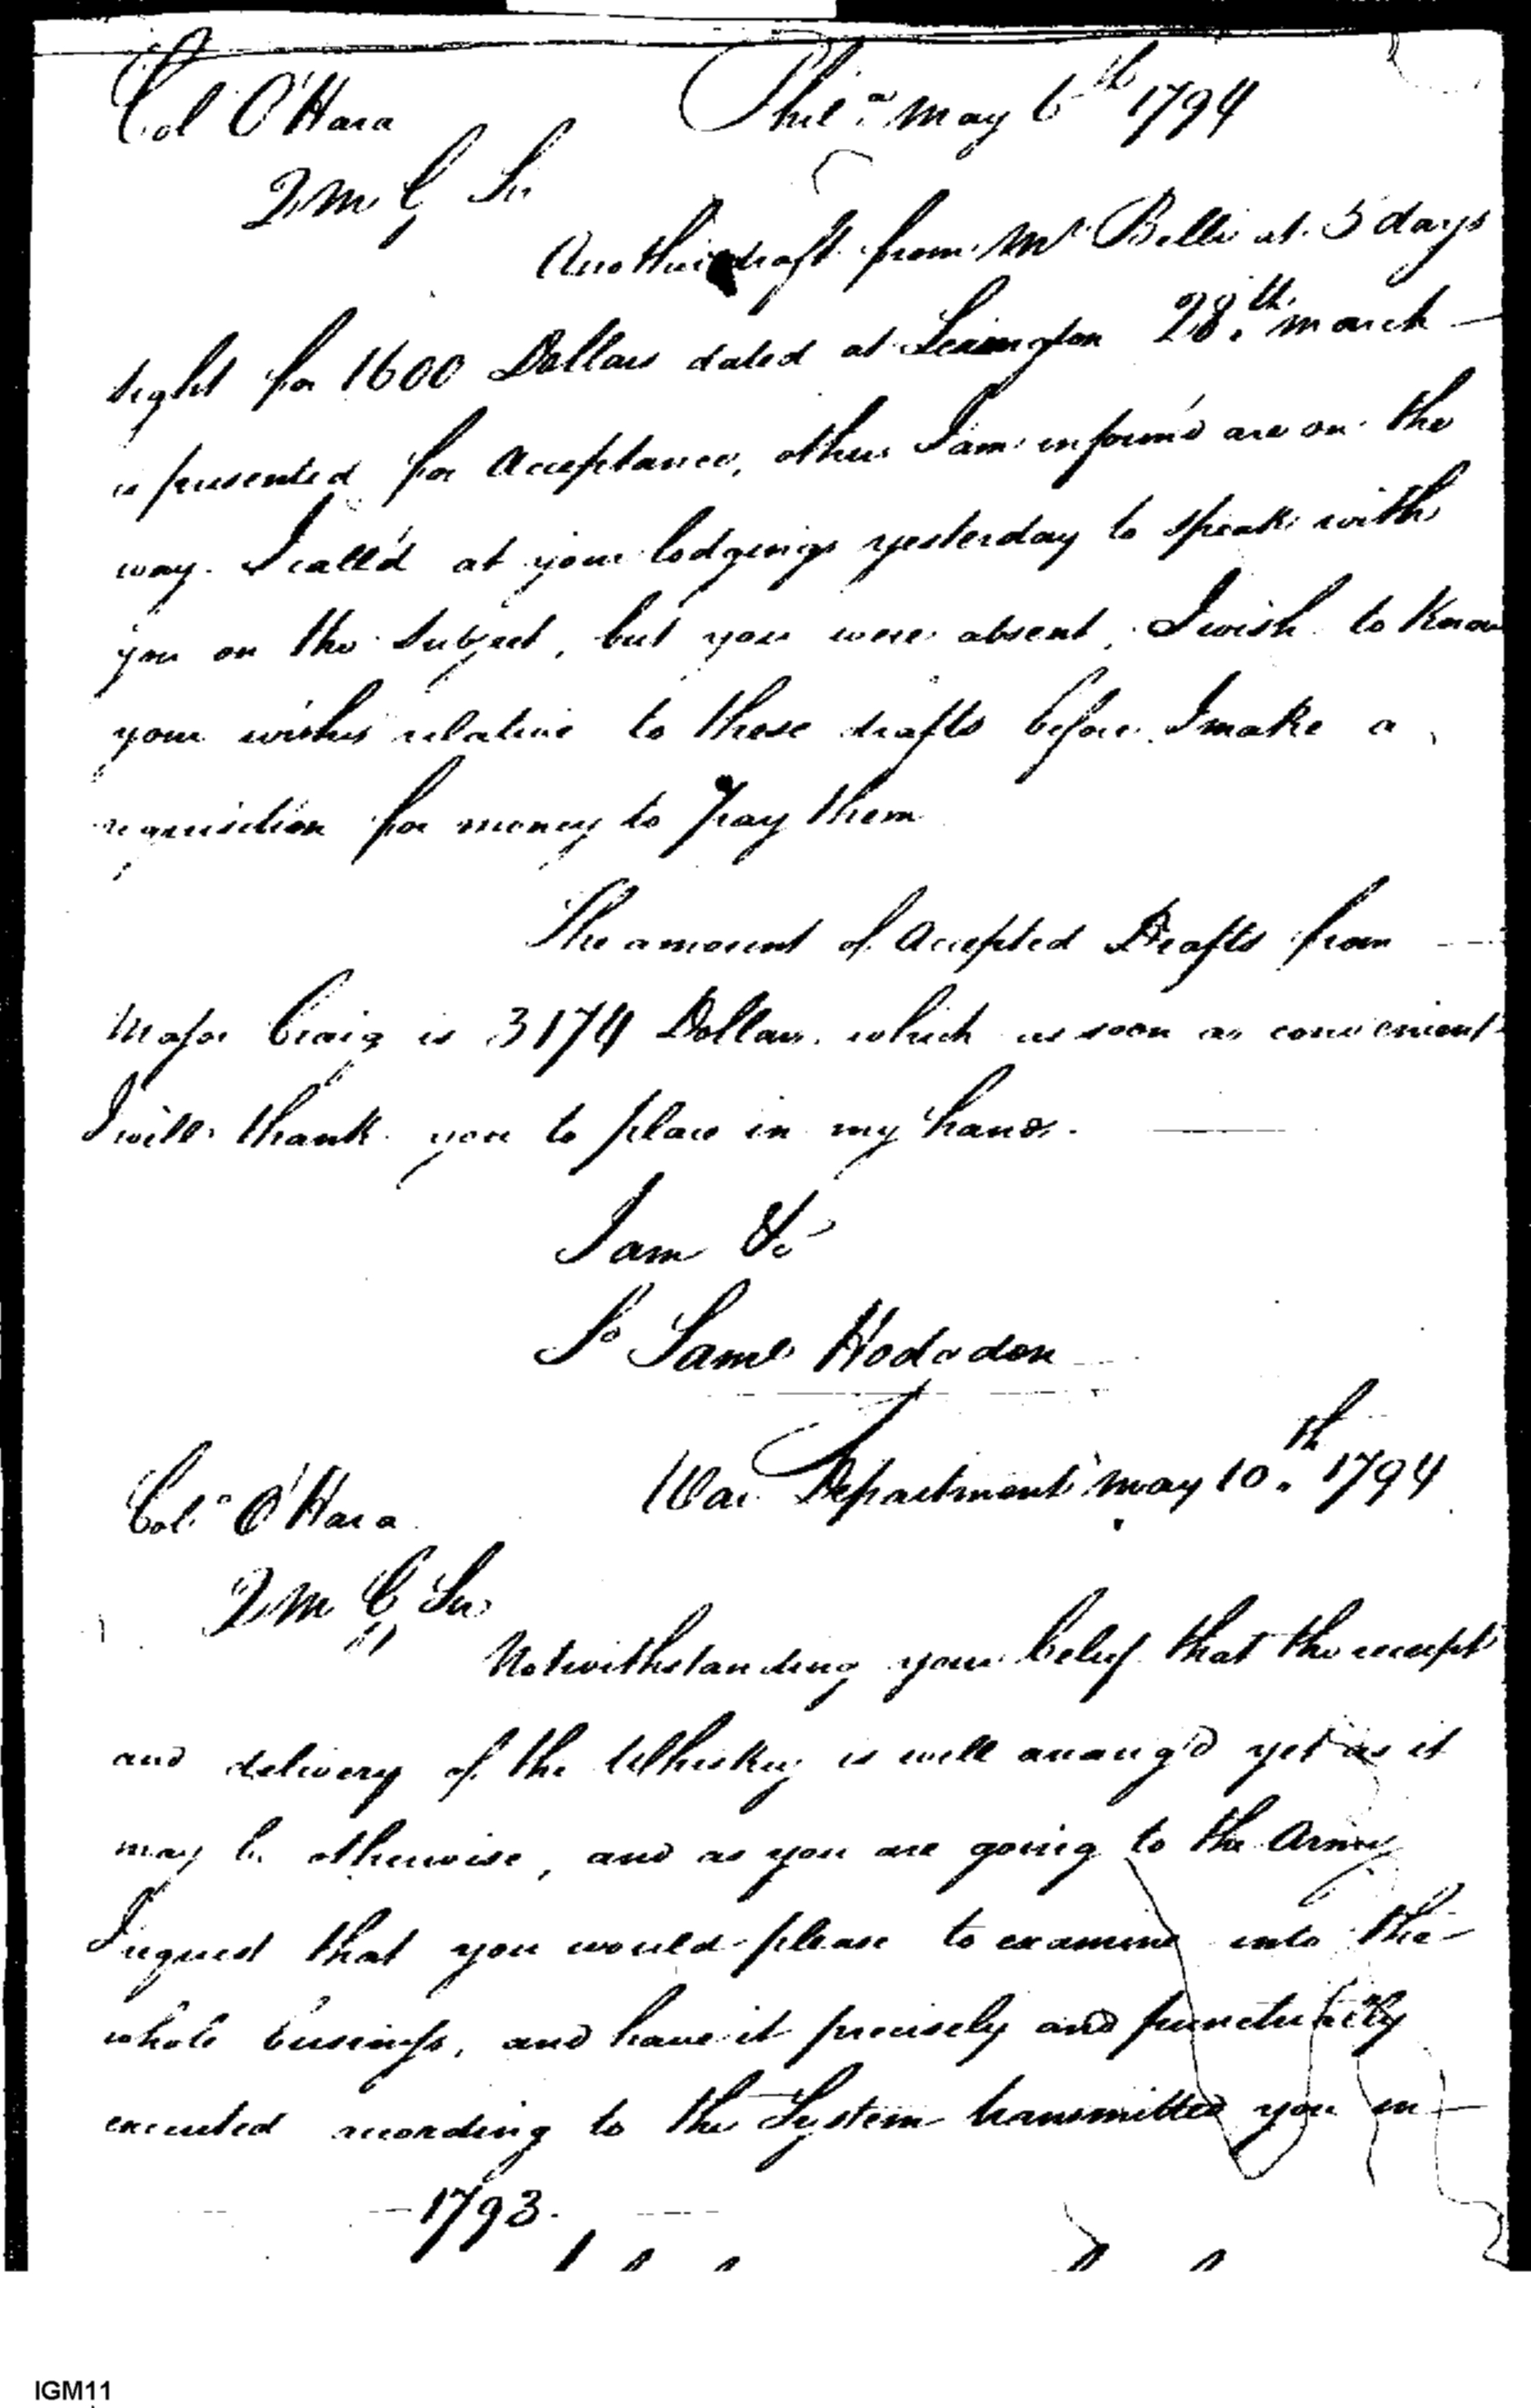 Col O'Hara Phila. May 6th 1794
QMG Sir
Another draft from Mr Belli at 5 days
sight for 1600 Dollars dated at Lexington 28.th March
is presented for Acceptance, others I am inform'd are on the
way. I call'd at your lodgings yesterday to speak with
you on the subject, but you were absent, I wish to Know
your wishes relative to these drafts before I make a
requisition for money to pay them
The amount of Accepted Drafts from
Major Craig is 3174 Dollars. which as soon as convenient
I will thank you to place in my hands.
I am &c
Saml Hodgdon
Colo O'Hara War Department May 10.th 1794
QMG Sir
Notwithstanding your belief that the receipt
and delivery of the Whiskey is well arrang'd yet as it
may be otherwise, and as you are going to the Army
I request that you would please to examine into the
whole business, and have it precisely and punctually
executed according to the System transmitted you in
1793.
IGM11